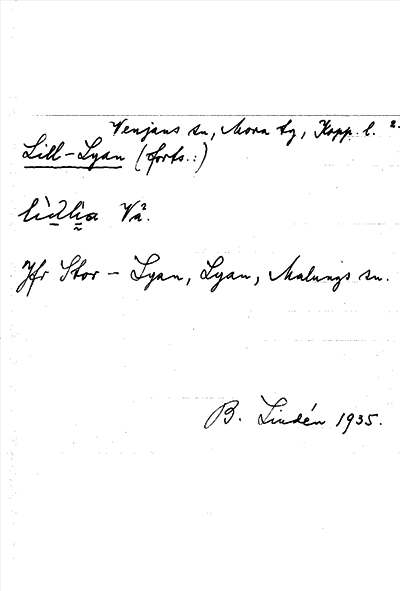 Venjans sn, Mora tg, Kopp. l. 2.
Lill-Lyan (forts.:)
Vå.
Jfr Stor-Lyan, Lyan, Malungs sn.
B. Lindén 1935.